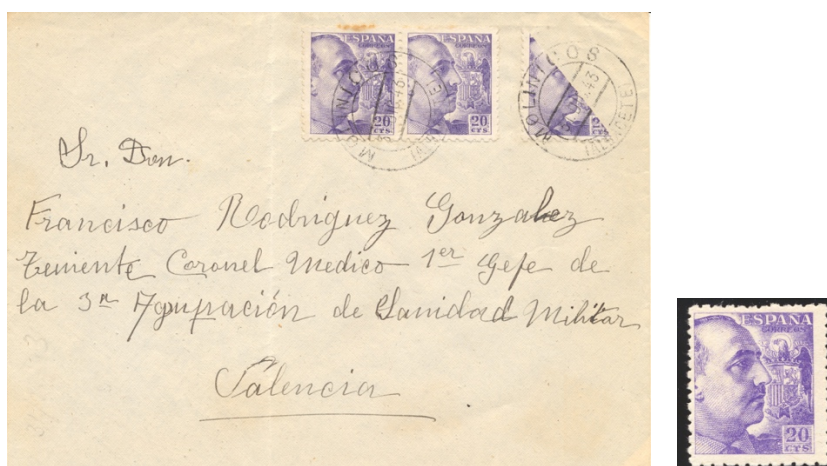 ESPAÑA
CORREOS
20
CTS
ESPAÑA
CORREOS
20
CTS
MOLINICOS
MOLINICOS
ALBACETE
Sr. Don.
Francisco Rodriguez Gonzalez
Teniente Coronel Medico 1er Gefe de
la 3ª Agrupación de Sanidad Militar
Valencia
ESPAÑA
CORREOS
20
CTS